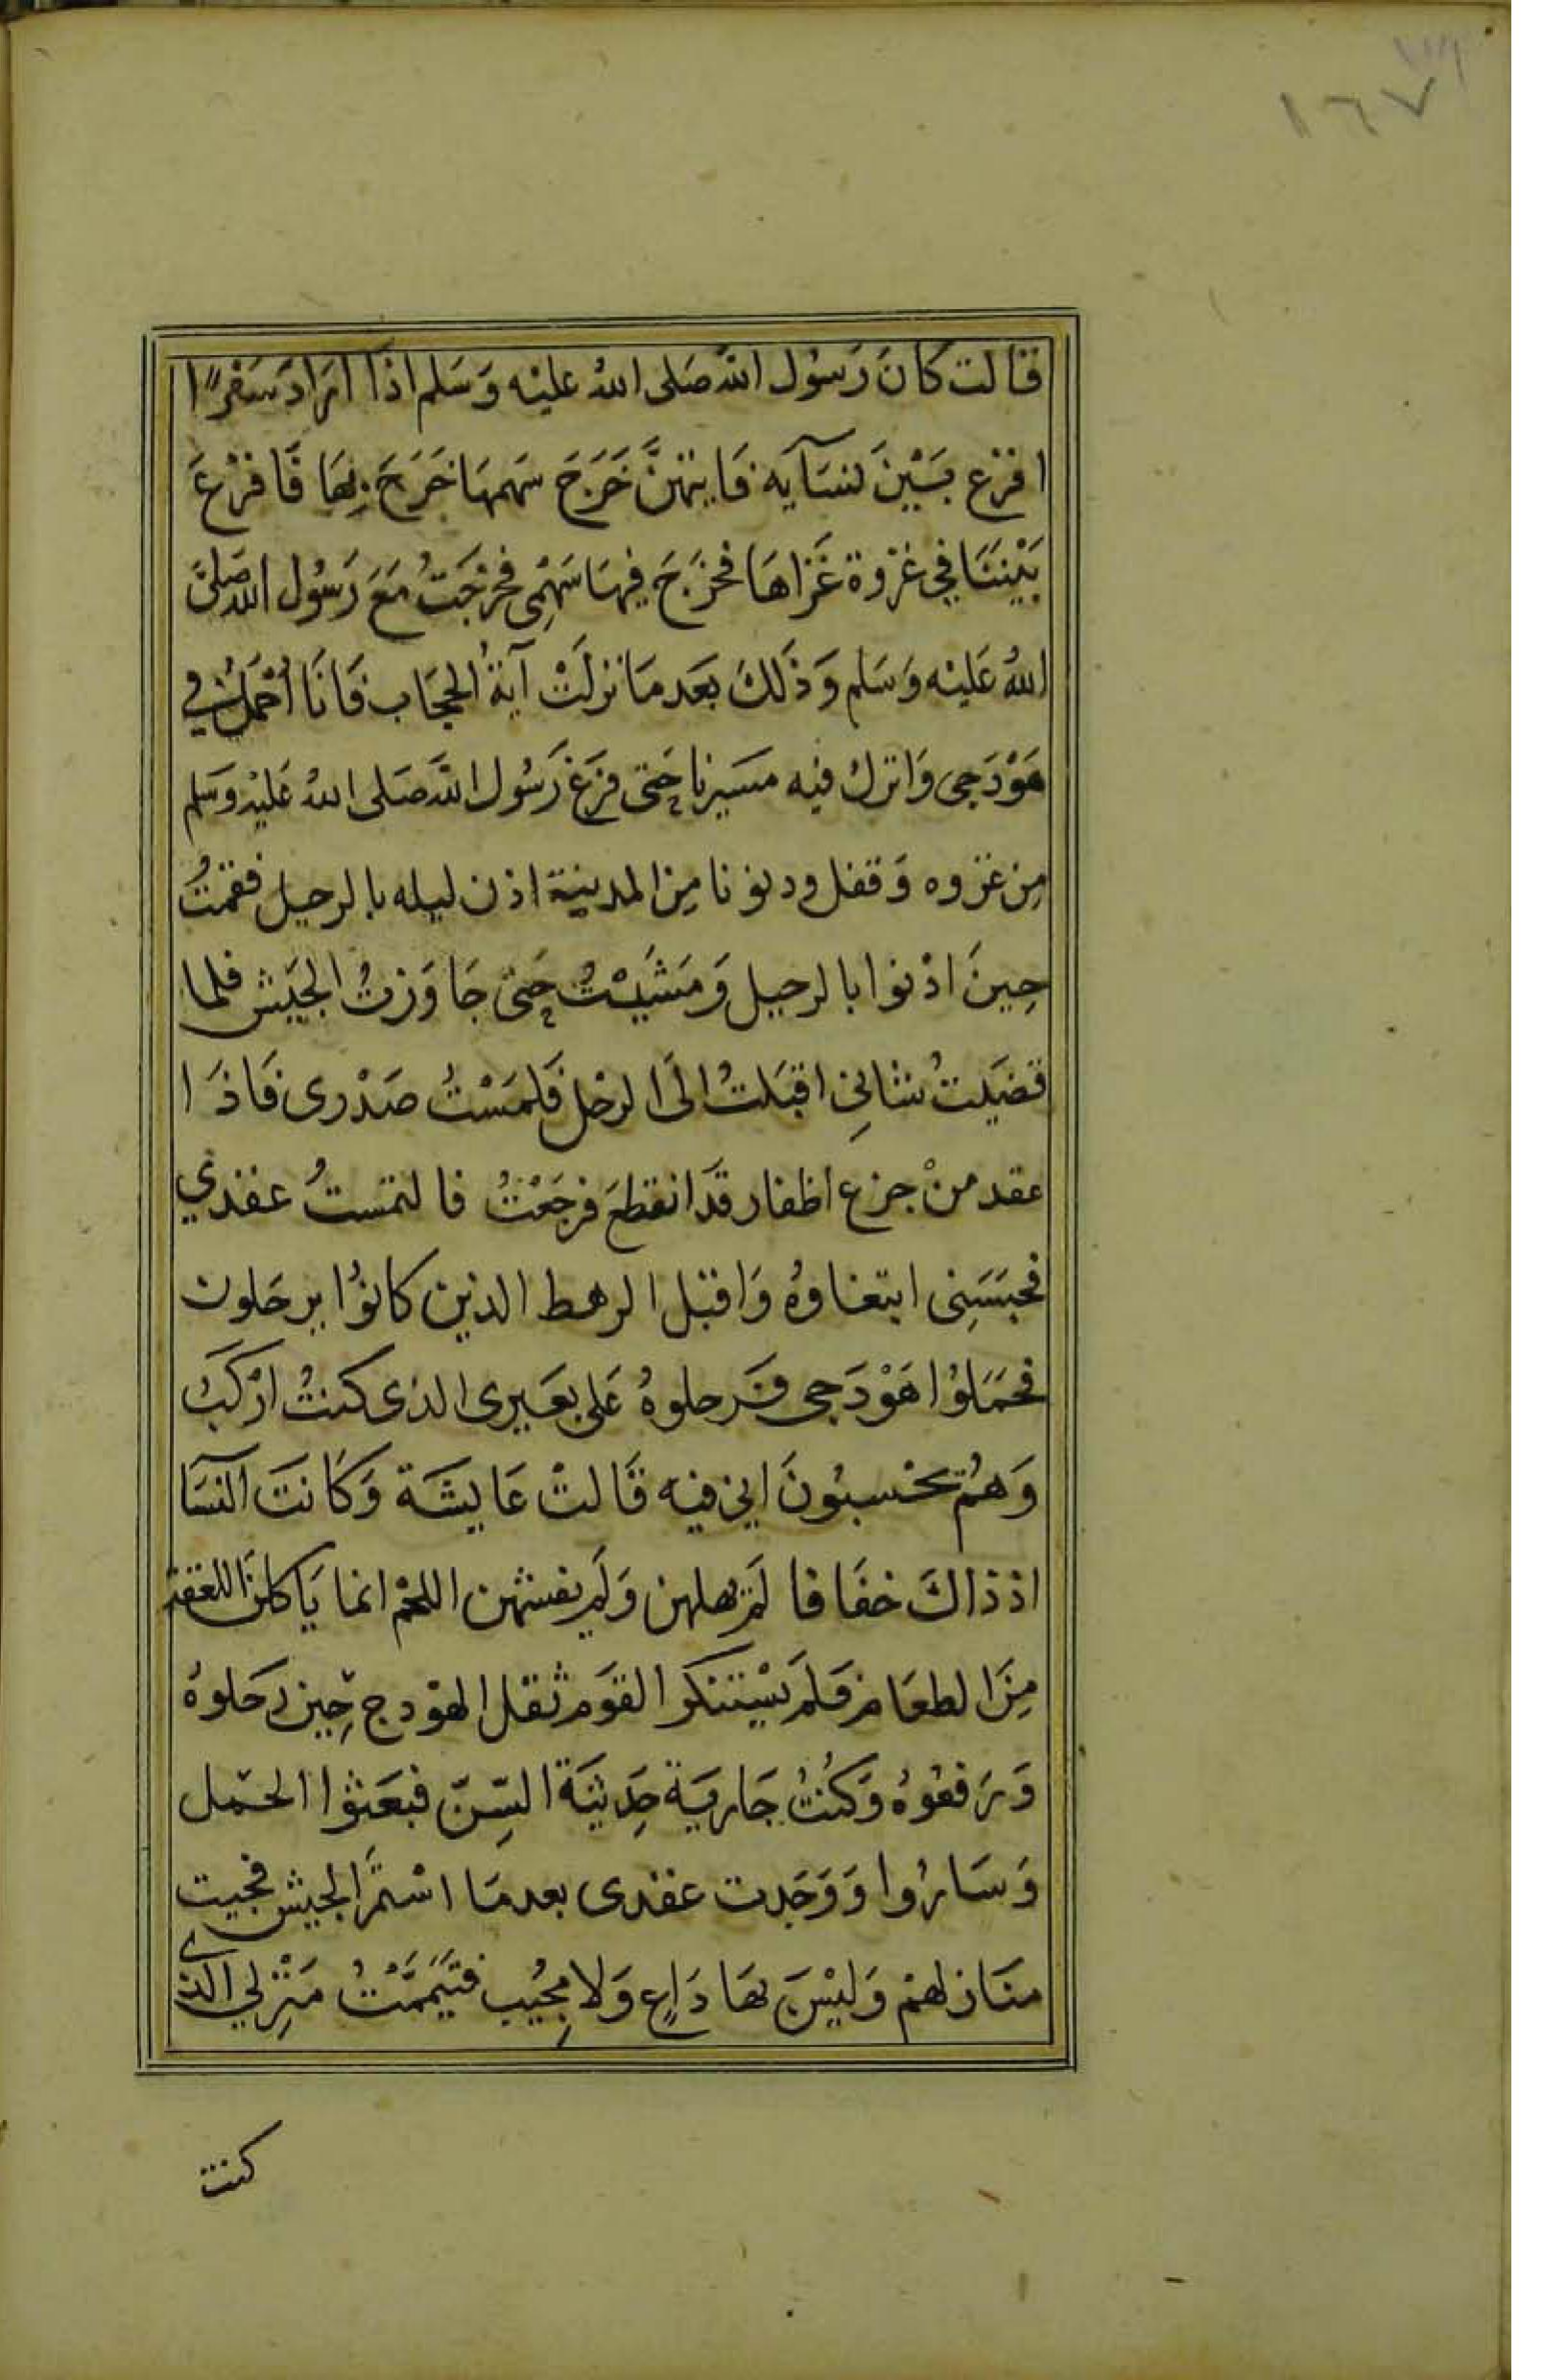 ١٦٧
قالت كانَ رَسوُل الله صَلى اللهُ عليْه وَسَلم اذا ارَادَ سَفرًا
اقرْع بَيْنَ نسَآيه فَايتهنَّ خَرَجَ سَهمهَا خَرَجَ بِهَا فَاقرْعَ
بَيْننَا في غزْوة غَزاهَا فخرَجَ فيهَا سَهْمِى فخرَجَتُ مَعَ رَسُول الله صَلىَّ
اللهُ عَليْه وَسَلم وَذَلكَ بَعَد مَا نزلَتْ آيَةُ الحجَاب فَانَا اُحْمَلُ في
هَوْدَجى وَاترل فيْه مسَيرنا حَتى فرَغ رَسُول الله صَلى اللهُ عَليْه وَسَلم
مِن غزوه وَقفل ودنونا مِن المدينة اذن ليله بالرحيل فقمتُ
حِينَ اذْنوا بالرحيل وَمَشَيْتُ حَتى جَاوَزتُ الجَيش فلما
قضيَتُ شانِي اقبَلتُ الىَ الرحْل فَلمَسْتُ صَدْرى فَاذَا
عقد منْ جزع اظفار قَدَ انقطعَ فرجَعْتُ فالتمستُ عقدي
فحبَسَنِى ابتغاوُهُ وَاقبْل الرهط الذين كانوُا يرحَلون
فحمَلوُا هَوْدَجى فَرحلوهُ عَلى بعَيرى الذى كنتُ ارْكَبَ
وَهُمْ يحْسبُونَ اني فيْه قَالتْ عَايشَة وَكَانتَ النسَآ
اذ ذاكَ خفَافا لمَ يهبلهن وَلمَ يغشهن اللحْم انما يَاكلنَ اللعقة
مِنَ الطعَام فَلمَ يسْتنكر القوَم ثقل الهوْدج حِين رحَلوهُ
وَرَفعُوهُ وَكنُتُ جَاريَة حَدِيثَة السِّنّ فبعَثوا الجمَل
وَسَارُوا وَوَجَدت عقدى بعد مَا اسْتمَّر الجيش فجيت
منَازلهمْ وَليْسَ بهَا دَاعٍ وَلا مجُيِب فتيَممَّتُ مَنْزِلي الذى
كنت